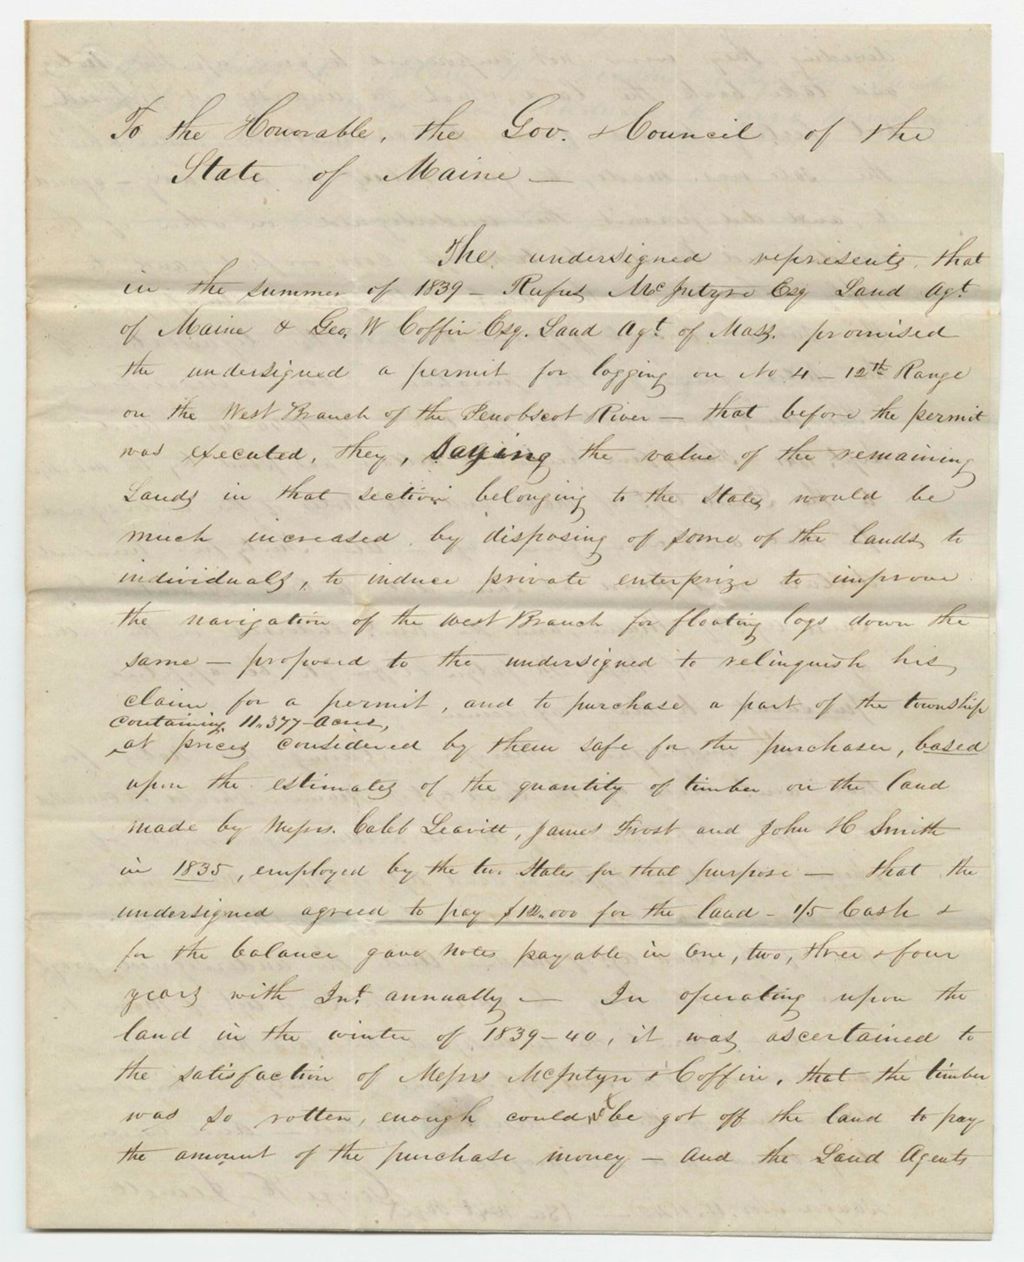 To the Honorable, the Gov. & Council of the
State of Maine —
The undersigned represents, that
in the summer of 1839 — Rufus McIntyre Esq Land Agt
of Maine & Geo. W Coffin Esq. Land Agt of Mass. promised
the undersigned a permit for logging on No 4 — 12th Range
on the West Branch of the Penobscot River — that before the permit
was executed, they, saying the value of the remaining
Lands in that section belonging to the States would be
much increased by disposing of some of the lands to
individuals, to induce private enterprize to improve
the navigation of the West Branch for floating logs down the
same — proposed to the undersigned to relinquish his
claim for a permit, and to purchase a part of the township
containing 11,377 acres,
at prices considered by them safe for the purchaser, based
upon the estimates of the quantity of timber on the land
made by Messrs. Caleb Leavitt, James Frost and John H Smith
in 1835, employed by the two States for that purpose — that the
undersigned agreed to pay $12,000 for the land — 1/5 Cash &
for the balance gave notes payable in one, two, three & four
years with Int. annually — In operating upon the
land in the winter of 1839–40, it was ascertained to
the satisfaction of Messrs McIntyre & Coffin, that the timber
was so rotten, enough could be got off the land to pay
the amount of the purchase money — and the Land Agents